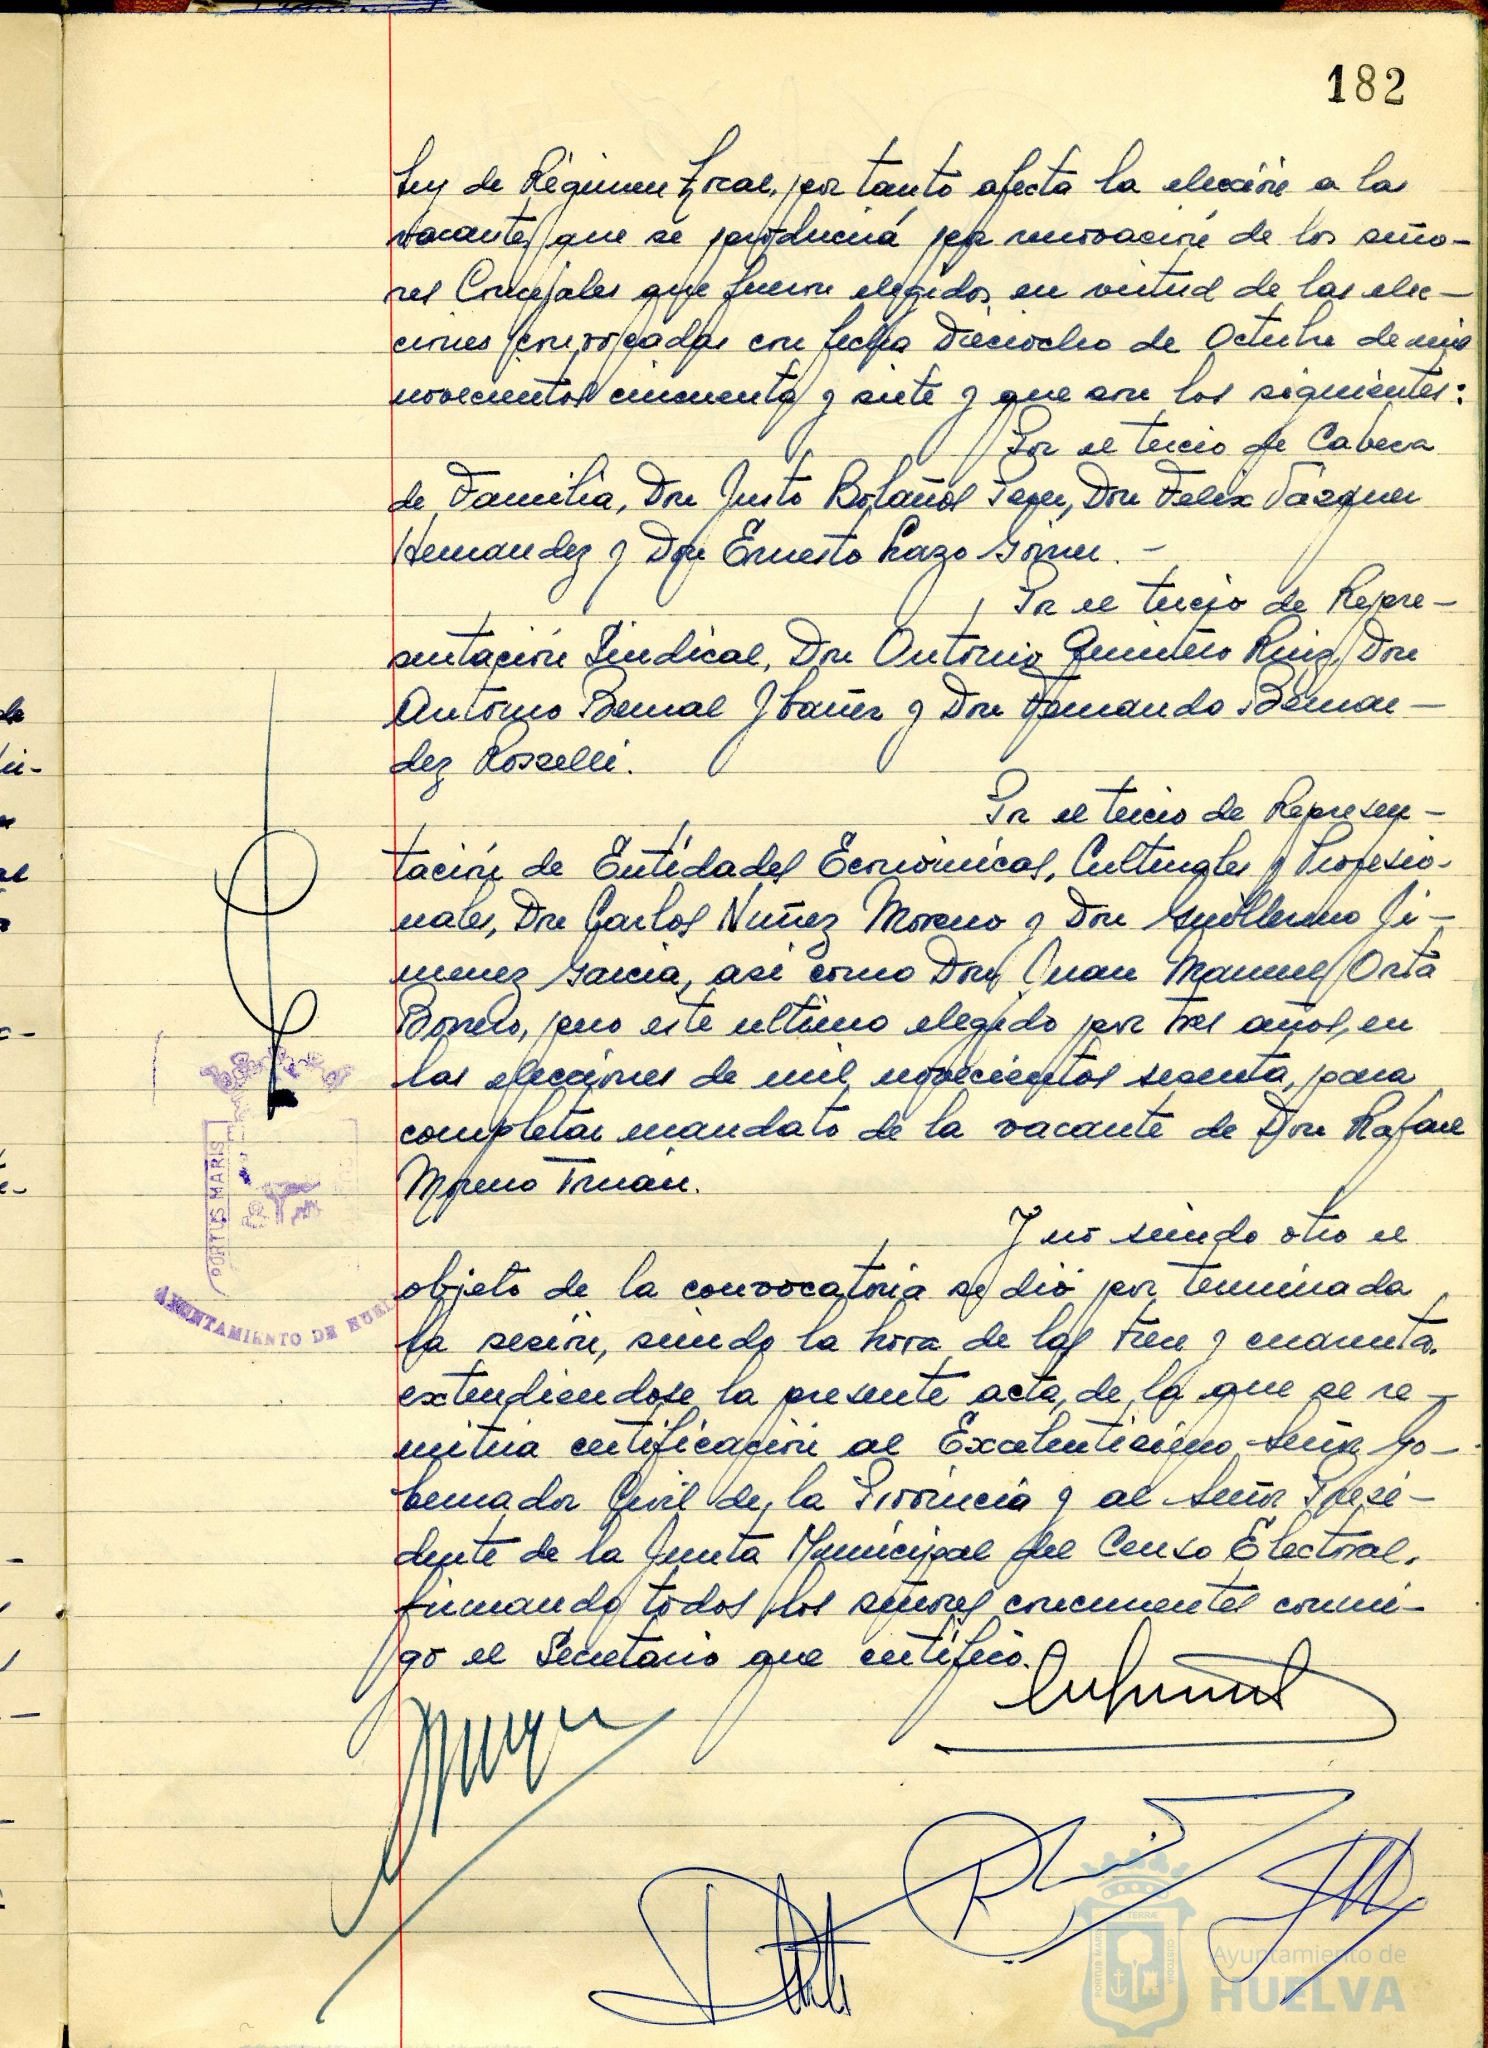 182
Ley de Régimen Local, por tanto afecta la elección a la
vacantes que se producirá por renovación de los seño-
res Concejales que fueron elegidos en virtud de las elec-
ciones convocadas con fecha Dieciocho de Octubre de mil
novecientos cincuenta y siete y que son los siguientes:
Por el tercio de Cabeza
de Familia, Don Justo Bolaños Perez, Don Felix Vázquez
Hernandez y Don Ernesto Lazo
Por el tercio de Repre-
sentación Sindical, Don Antonio Quintero Ruiz, Don
Antonio Bernal Ybañez y Don Fernando Bernar-
dez Rosselli.
Por el tercio de Represen-
tación de Entidades Económicas, Culturales y Profesio-
nales, Don Carlos Núñez Moreno y Don Guillermo Ji-
menez Garcia, asi como Don Juan Manuel Orta
Borrero, pero este ultimo elegido por tres años, en
las elecciones de mil novecientos sesenta, para
completar mandato de la vacante de Don Rafael
Moreno Truán.
Y no siendo otro el
objeto de la convocatoria se dió por terminada
la sesión, siendo la hora de las trece y cuarenta,
extendiendose la presente acta, de la que se re-
mitira certificación al Excelentisimo Señor Go-
bernador Civil de la Provincia y al Señor Presi-
dente de la Junta Municipal del Censo Electoral,
firmando todos los señores concurrentes conmi-
go el Secretario que certifico.
PORTUS MARIS
AYUNTAMIENTO DE HUELVA
Ayuntamiento de
HUELVA